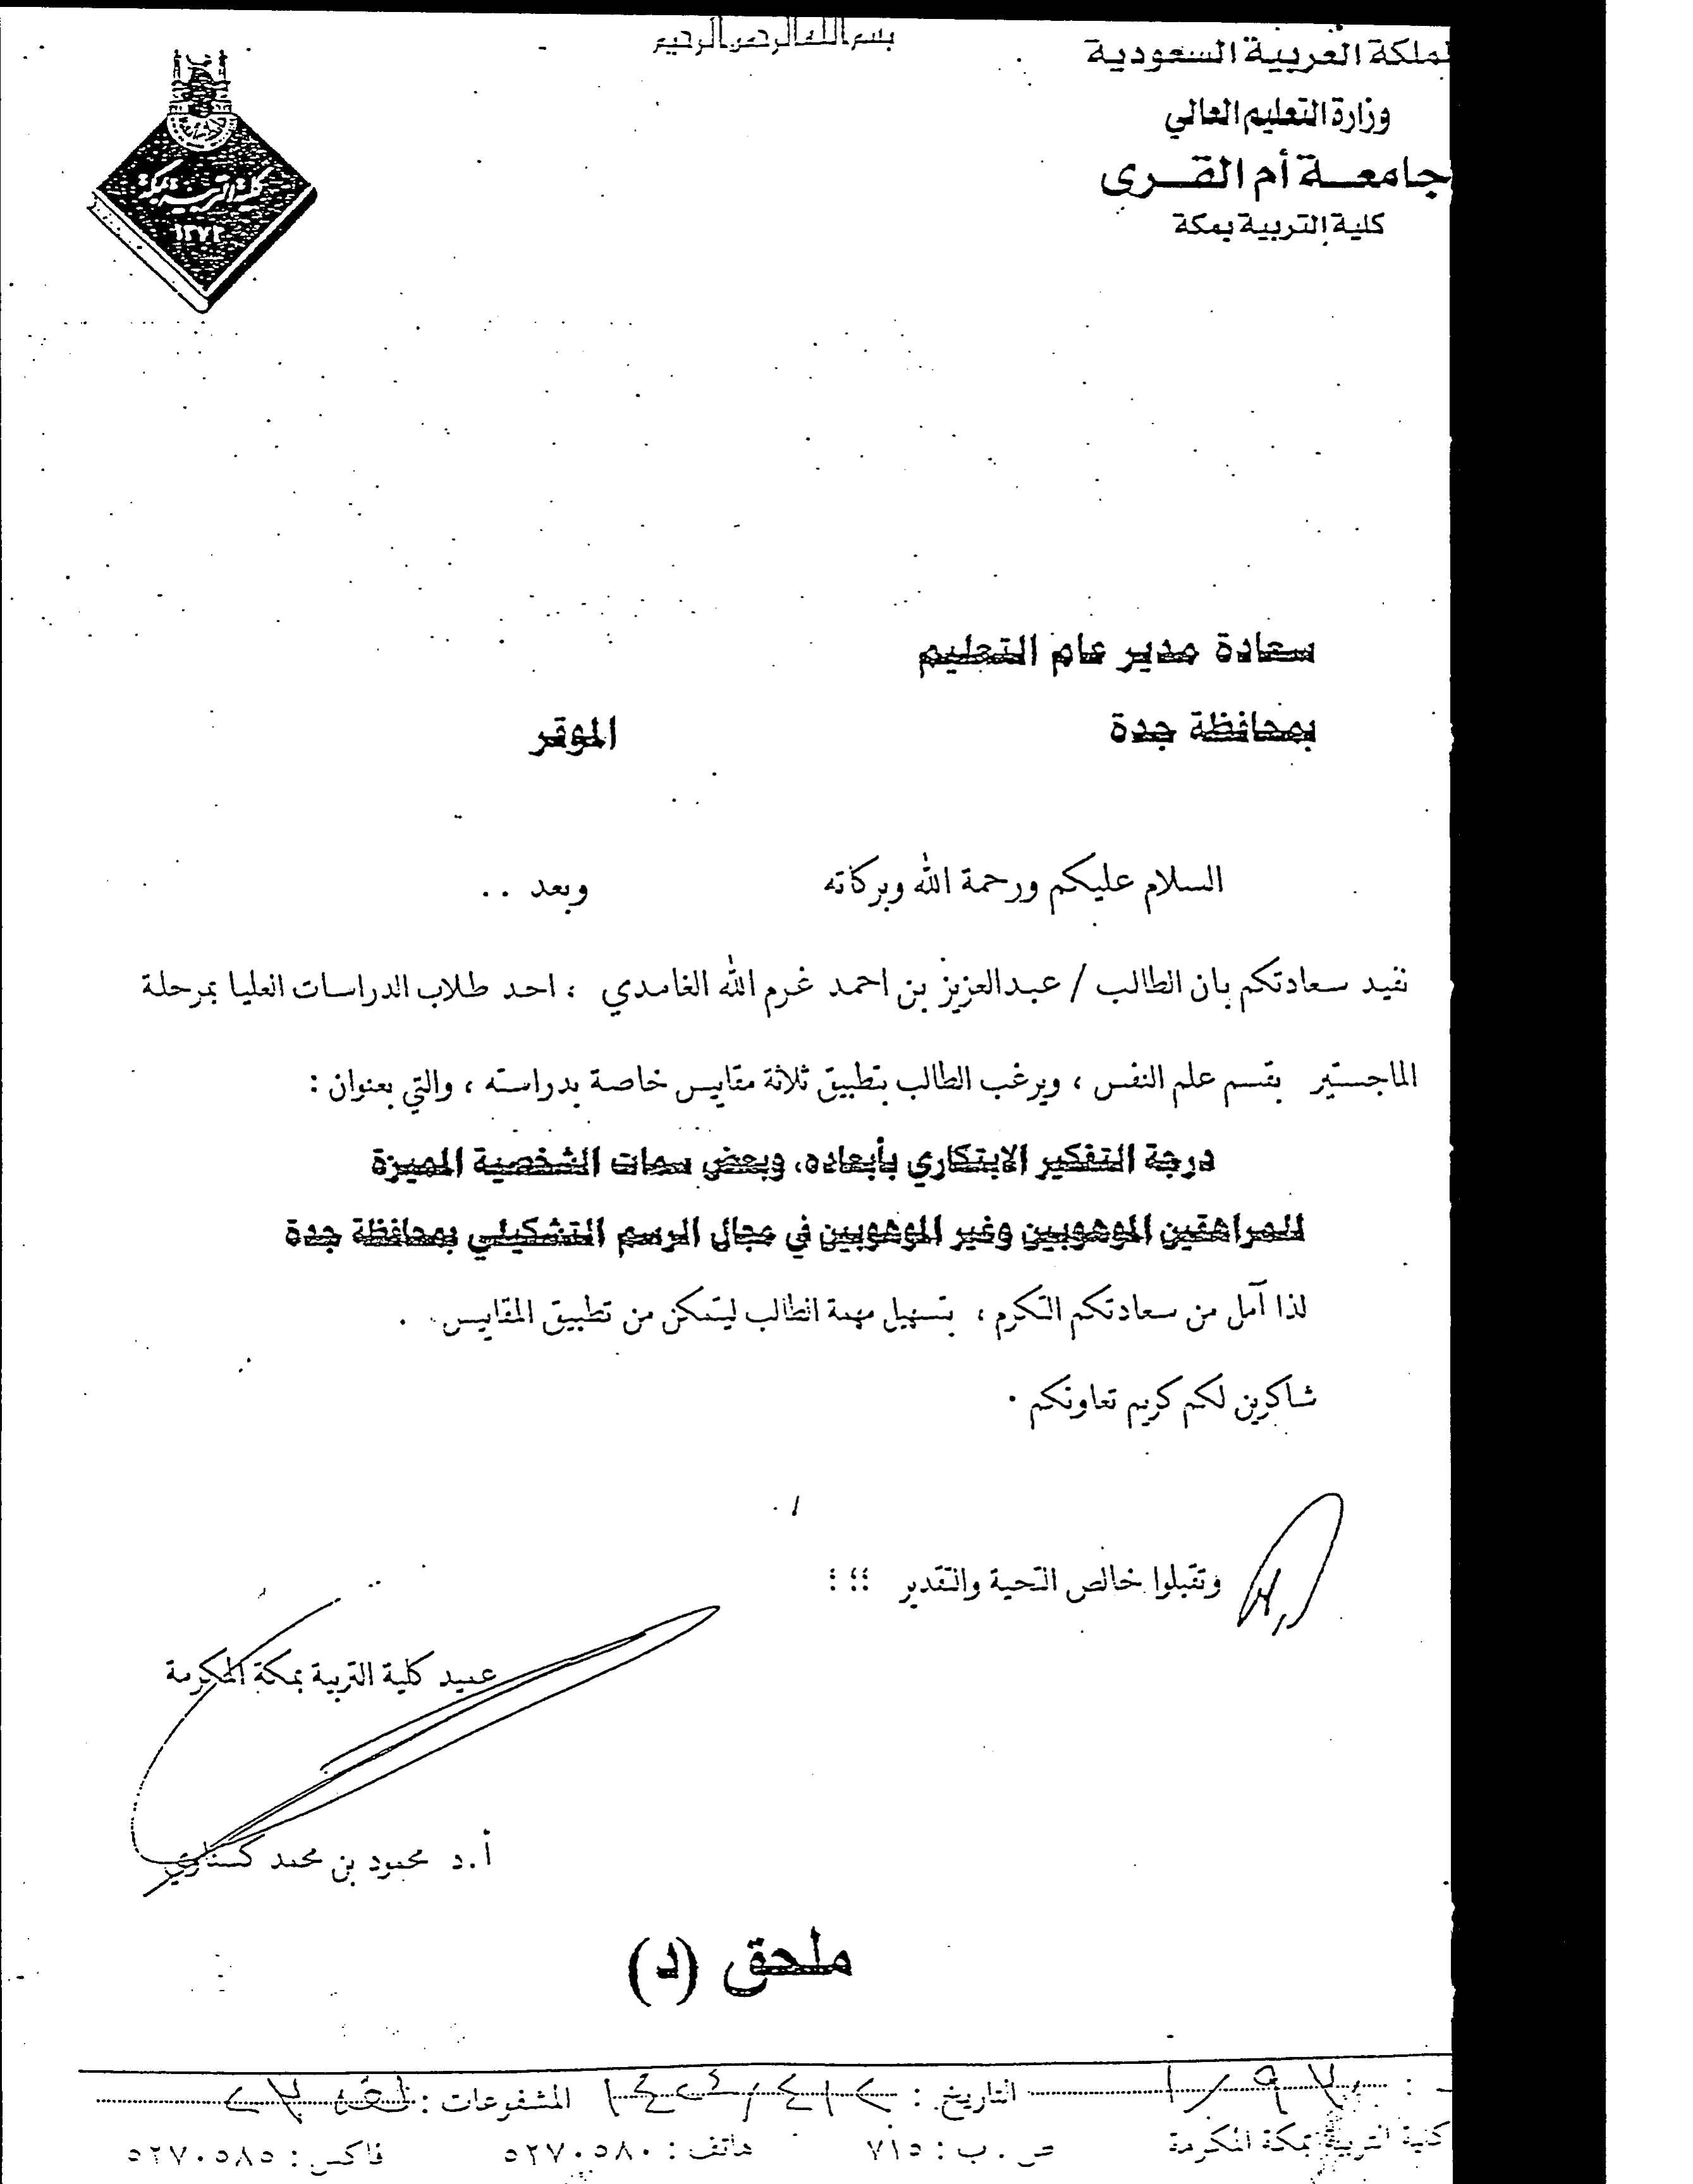 بسم الله الرحمن الرحيم
لمملكة العربية السعودية
وزارة التعليم العالي
جامعـــة أم القـــرى
كلية التربية بمكة
كلية التربية بمكة
١٣٧٢
سعادة مدير عام التعليم
بمحافظة جدة الموقر
السلام عليكم ورحمة الله وبركاته وبعد ..
نفيد سعادتكم بان الطالب / عبدالعزيز بن احمد غرم الله الغامدي ، احد طلاب الدراسات العليا بمرحلة
الماجستير بقسم علم النفس ، ويرغب الطالب بتطبيق ثلاثة مقايس خاصة بدراسته ، والتي بعنوان :
درجة التفكير الابتكاري بأبعاده، وبعض سمات الشخصية المميزة
للمراهقين الموهوبين وغير الموهوبين في مجال الرسم التشكيلي بمحافظة جدة
لذا آمل من سعادتكم التكرم ، بتسهيل مهمة الطالب ليتمكن من تطبيق المقايس .
شاكرين لكم كريم تعاونكم .
وتقبلوا خالص التحية والتقدير ؛؛؛
عميد كلية التربية بمكة المكرمة
أ.د محمود بن محمد كسناوي
ملحق (د)
التاريخ : المشفوعات :
كلية التربية بمكة المكرمة ص . ب : ٧١٥ هاتف : ٥٢٧٠٥٨٠ فاكس : ٥٢٧٠٥٨٥